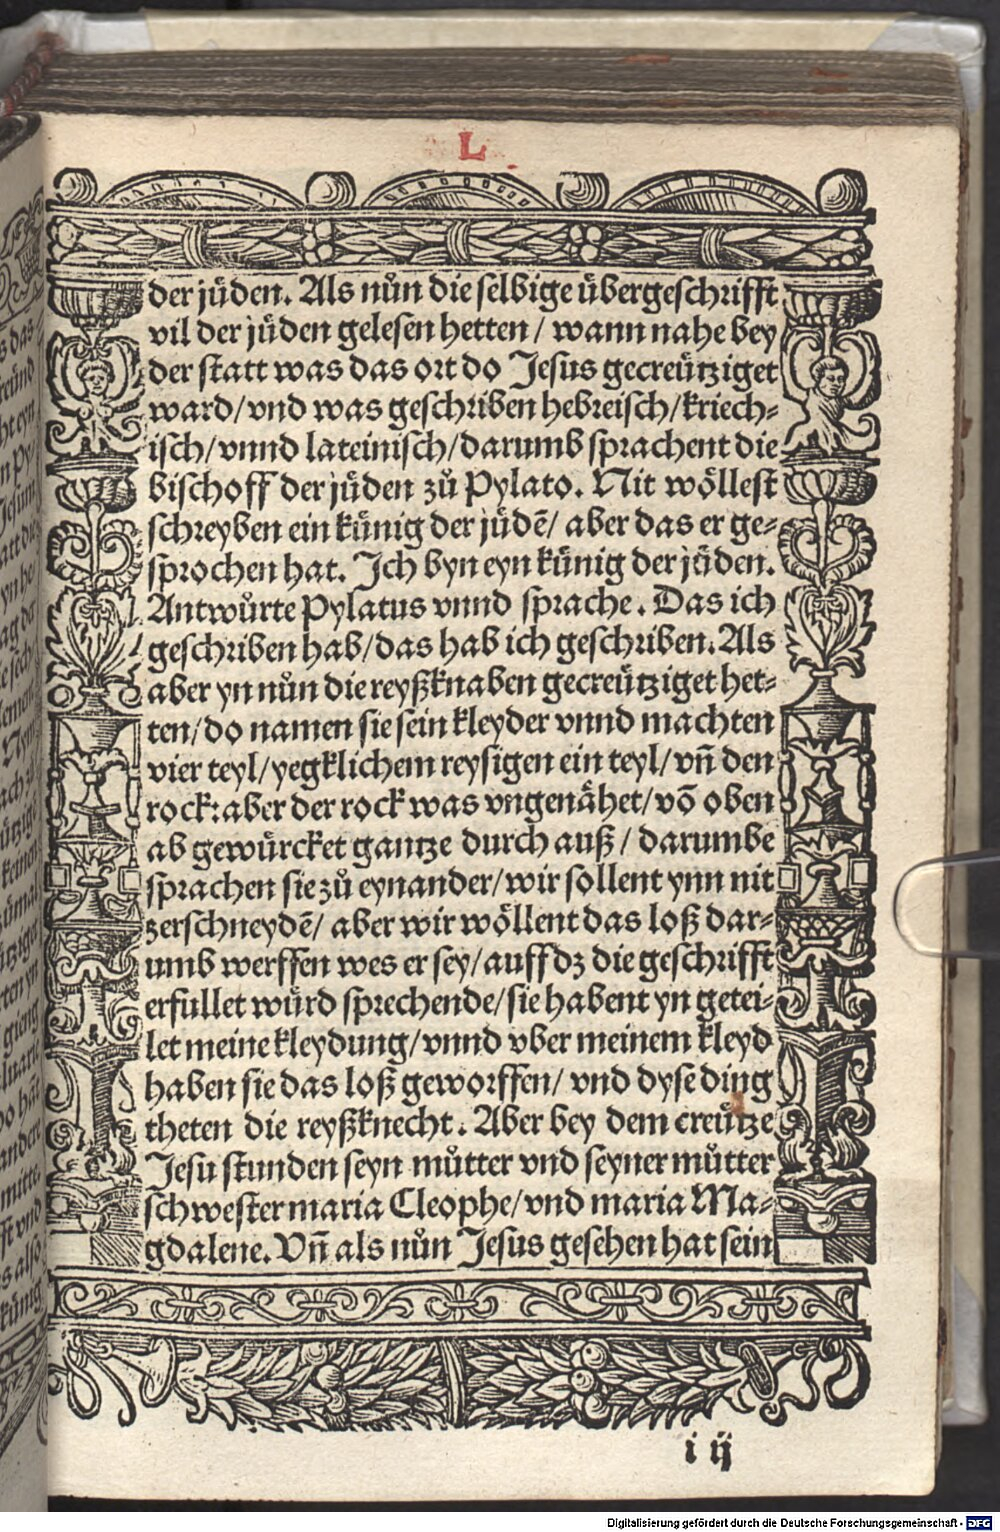 L
der jüden. Als nůn die selbige übergeschrifft
vil der jüden gelesen hetten / wann nahe bey
der statt was das ort do Jesus gecreütziget
ward/vnd was geschriben hebreisch/kriech⸗
isch/vnnd lateinisch/darumb sprachent die
bischoff der jüden zů Pylato. Nit wöllest
schreyben ein künig der jüdē/ aber das er ge⸗
sprochen hat. Ich byn eyn künig der jüden.
Antwůrte Pylatus vnnd sprache. Das ich
geschriben hab/das hab ich geschriben. Als
aber yn nůn die reyßknaben gecreütziget het⸗
ten/do namen sie sein kleyder vnnd machten
vier teyl/yegklichem reysigen ein teyl/vñ den
rock: aber der rock was vngenähet/vō oben
ab gewürcket gantze durch auß / darumbe
sprachen sie zů eynander/wir sollent ynn nit
zerschneydē/ aber wir wöllent das loß dar⸗
umb werffen wes er sey/auff dz die geschrifft
erfullet würd sprechende/sie habent yn getei⸗
let meine kleydung/vnnd vber meinem kleyd
haben sie das loß geworffen/ vnd dyse ding
theten die reyßknecht. Aber bey dem creütze
Jesu stunden seyn můtter vnd seyner můtter
schwester maria Cleophe/vnd maria Ma⸗
gdalene. Vñ als nůn Jesus gesehen hat sein
i ij
Digitalisierung gefördert durch die Deutsche Forschungsgemeinschaft - DFG